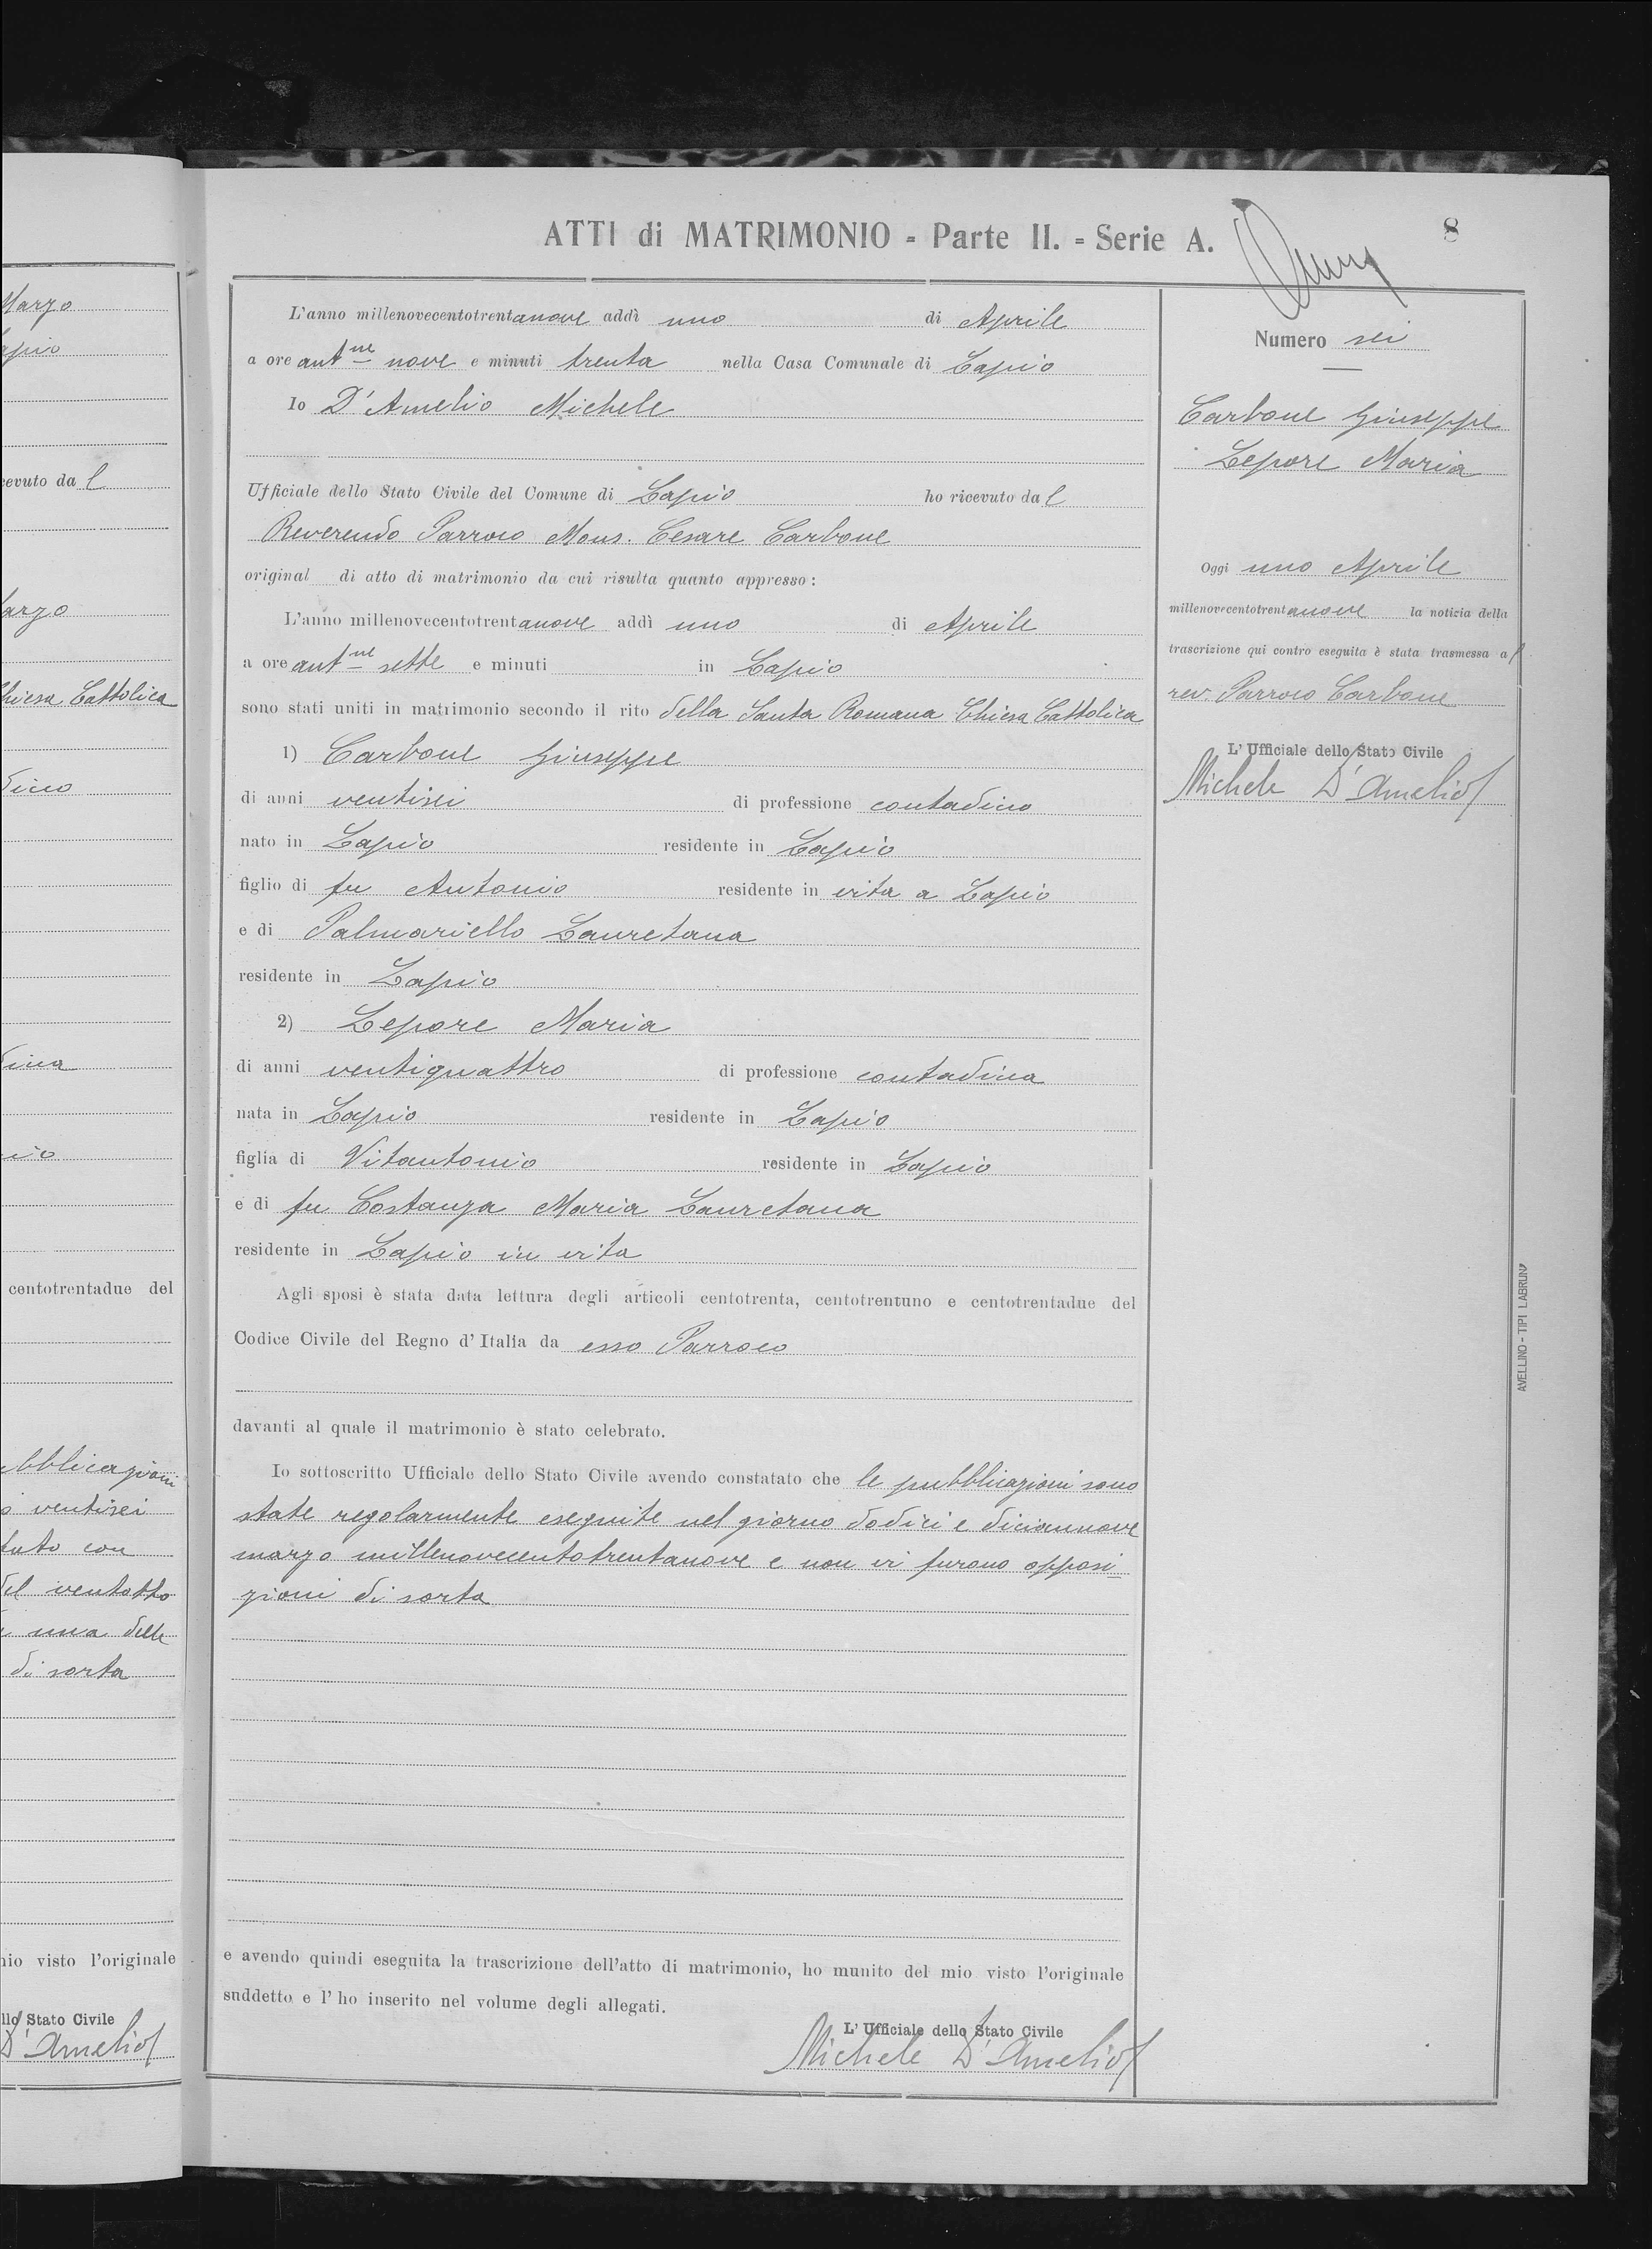 Marzo
cevuto da l
Marzo
Chiesa Cattolica
centotrentadue del
ubblicazioni
ventisei
con
del ventotto
una delle
di sorta
mio visto l'originale
llo Stato Civile
D'Amelio
ATTI di MATRIMONIO - Parte II. - Serie A.
8
L'anno millenovecentotrentanove addì uno di Aprile
a ore ant.ne nove e minuti trenta nella Casa Comunale di Lapio
Io D'Amelio Michele
Ufficiale dello Stato Civile del Comune di Lapio ho ricevuto dal
Reverendo Parroco Mons. Cesare Carbone
original di atto di matrimonio da cui risulta quanto appresso:
L'anno millenovecentotrentanove addì uno di Aprile
a ore ant.ne sette e minuti in Lapio
sono stati uniti in matrimonio secondo il rito della Santa Romana Chiesa Cattolica
1) Carbone Giuseppe
di anni ventisei di professione contadino
nato in Lapio residente in Lapio
figlio di fu Antonio residente in vita a Lapio
e di Palmariello Lauretana
residente in Lapio
2) Lepore Maria
di anni ventiquattro di professione contadina
nata in Lapio residente in Lapio
figlia di Vitantonio residente in Lapio
e di fu Costanza Maria Lauretana
residente in Lapio in vita
Agli sposi è stata data lettura degli articoli centotrenta, centotrentuno e centotrentadue del
Codice Civile del Regno d'Italia da esso Parroco
davanti al quale il matrimonio è stato celebrato.
Io sottoscritto Ufficiale dello Stato Civile avendo constatato che le pubblicazioni sono
state regolarmente eseguite nel giorno dodici e diciannove
marzo millenovecentotrentanove e non vi furono opposi-
zioni di sorta
e avendo quindi eseguita la trascrizione dell'atto di matrimonio, ho munito del mio visto l'originale
suddetto e l'ho inserito nel volume degli allegati.
L'Ufficiale dello Stato Civile
Michele D'Amelio
Numero sei
Carbone Giuseppe
Lepore Maria
Oggi uno Aprile
millenovecentotrentanove la notizia della
trascrizione qui contro eseguita è stata trasmessa al
rev. Parroco Carbone
L'Ufficiale dello Stato Civile
Michele D'Amelio
AVELLINO - TIPI LABRUNA